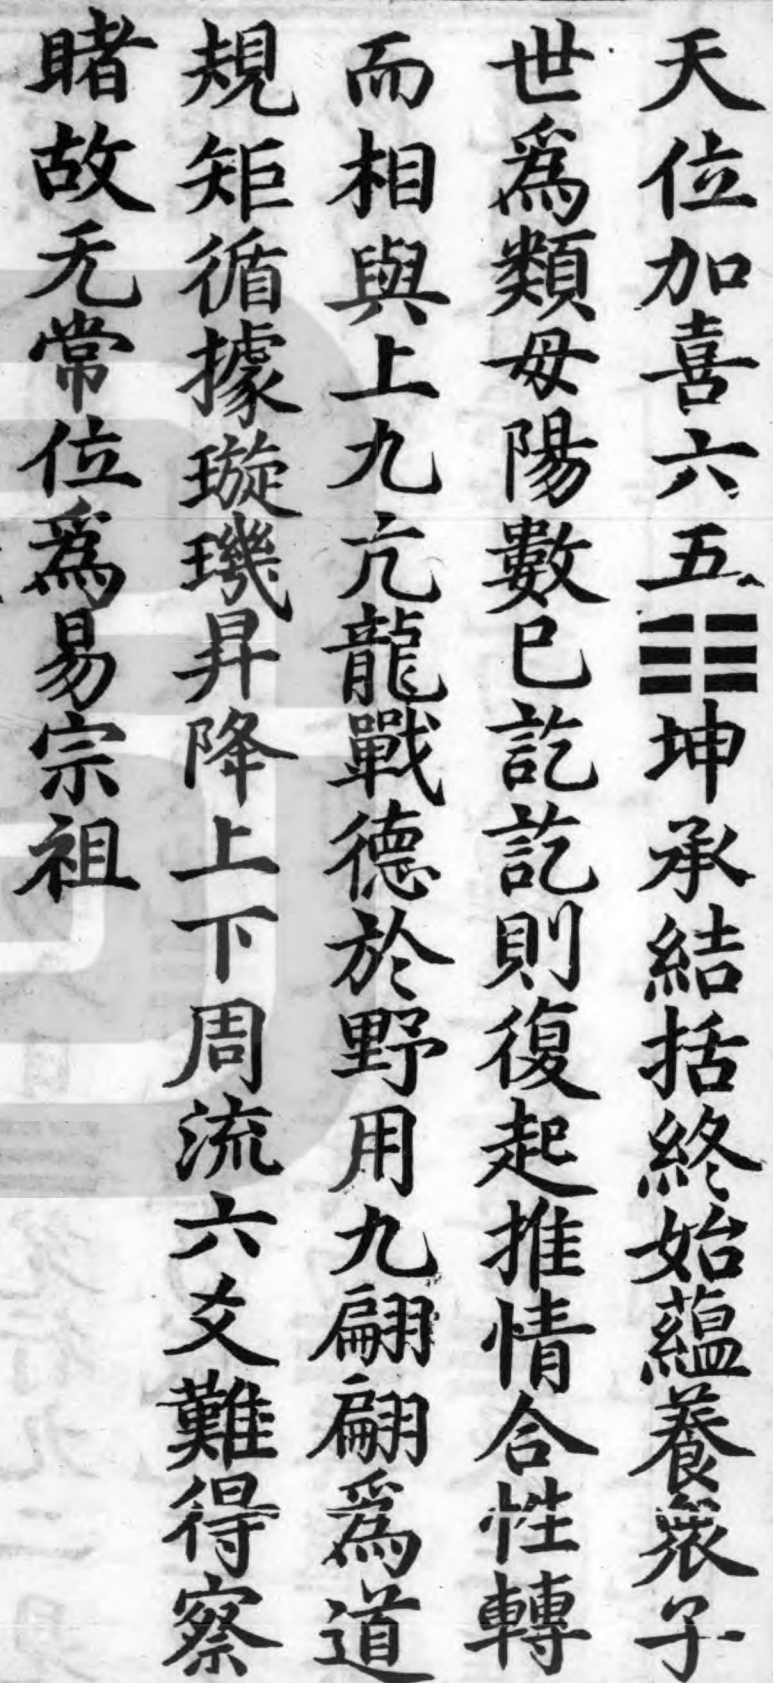 天位加喜六五☷坤承結括終始蘊養衆子
世為類母陽數已訖訖則復起推情合性轉
而相與上九亢龍戰德於野用九翩翩為道
規矩循據璇璣昇降上下周流六爻難得察
睹故无常位為易宗祖